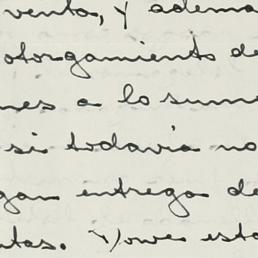 venta, y adema
otorgamiento de
nes a lo sume
si todavia no
gan entrega de
ntas. esta